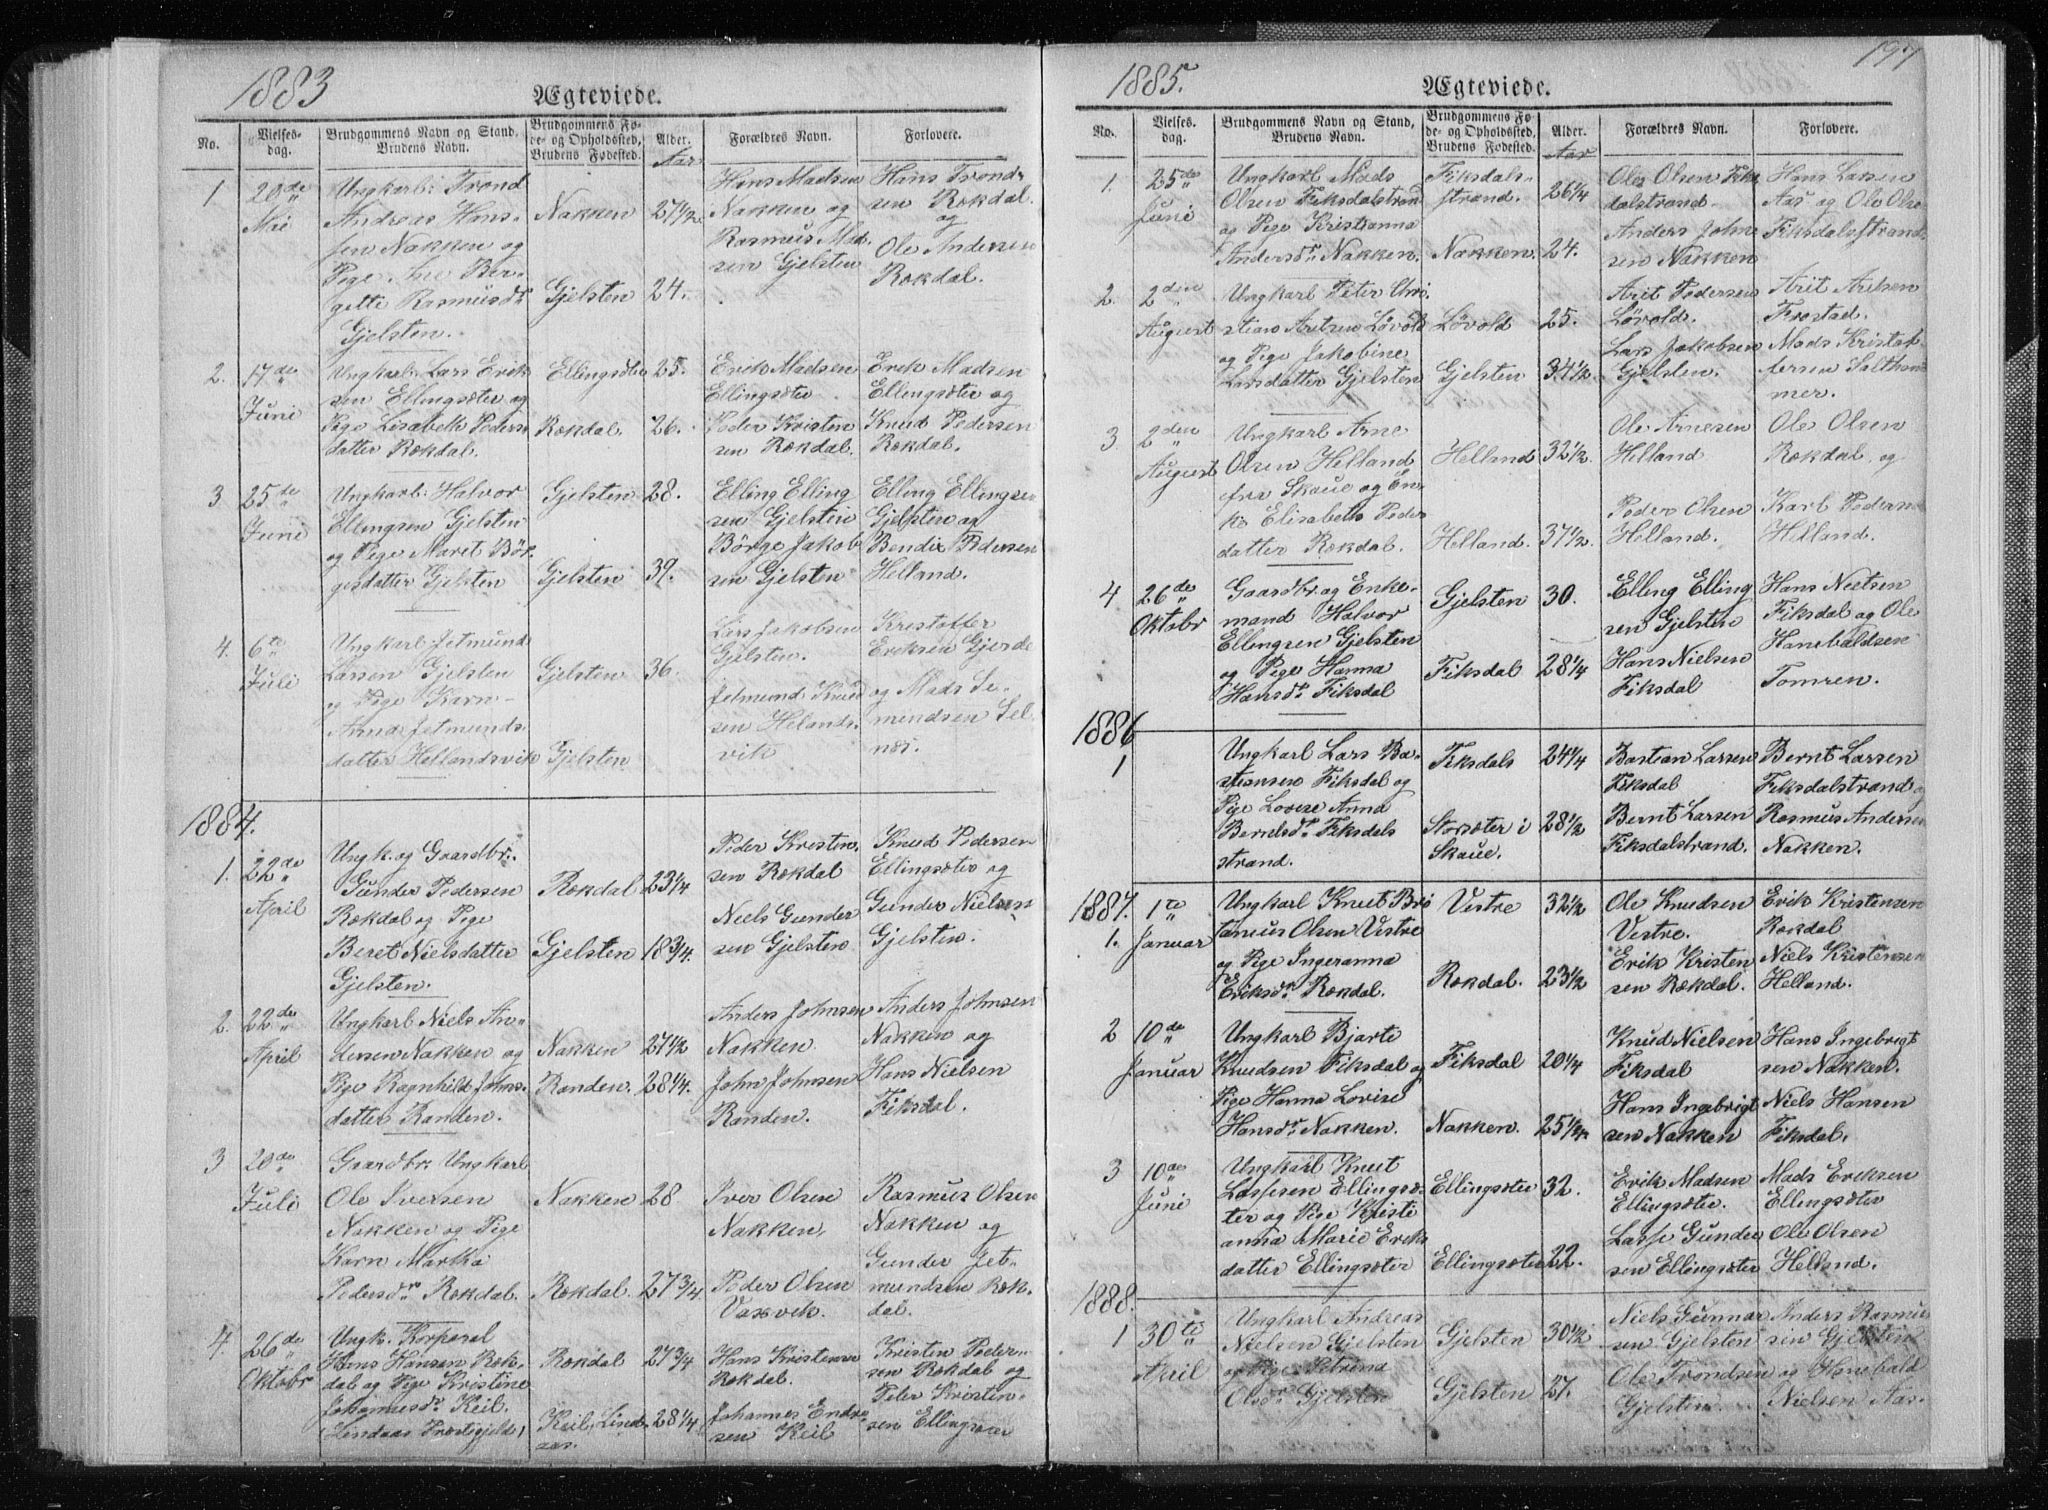 1883
Ægteviede.
No.
Vielses-
dag.
Brudgommens Navn og Stand,
Brudens Navn.
Brudgommens Fø-
de- og Opholdssted,
Brudens Fødested.
Alder.
Aar
Forældres Navn.
Forlovere.
1
20de
Mai
Ungkarl: Trond
Andreas Hans-
sen Nakken og
Pige Ane Ber-
gitte Rasmusdr
Gjelsten.
Nakken
Gjelsten
27 1/2
24.
Hans Madsen
Nakken og
Rasmus Mad-
sen Gjelsten
Hans Trond-
sen Rekdal
og
Ole Andersen
Rekdal.
2.
17de
Juni
Ungkarl: Lars Erik-
sen Ellingsæter og
Pige Lisabeth Peders-
datter Rekdal.
Ellingsæter
Rekdal.
25.
26.
Erik Madsen
Ellingsæter
Peder Kristen
sen Rekdal.
Erik Madsen
Ellingsæter og
Knud Pedersen
Rekdal.
3.
25de
Juni
Ungkarl: Halvor
Ellingsen Gjelsten
og Pige Maret Bör-
gesdatter Gjelsten
Gjelsten
Gjelsten
28.
39.
Elling Elling
sen Gjelsten
Börge Jakob
sen Gjelsten
Elling Ellingsen
Gjelsten og
Bendix Pedersen
Helland.
4.
6te
Juli
Ungkarl Jetmund
Larsen Gjelsten
og Pige Karn
Jetmunds-
datter Hellandsvik
Gjelsten
Gjelsten
36.
Lars Jakobsen
Gjelsten.
Jetmund Knud
sen Helands-
vik
Kristoffer
Eriksen Gjerde
og Mads Se-
mundsen Sel-
nes.
1884.
1.
22de
April
Ungk. og Gaardbr.
Gunder Pedersen
Rekdal og Pige
Beret Nielsdatter
Gjelsten.
Rekdal
Gjelsten
23 1/4
18 3/4.
Peder Kristen-
sen Rekdal
Niels Gunder
sen Gjelsten.
Knud Pedersen
Ellingsæter og
Gunder Nielsen
Gjelsten.
2.
22de
April
Ungkarl Niels An-
dersen Nakken og
Pige Ragnhild Johns-
datter Randen.
Nakken
Randen.
27 1/2
28 1/4.
Anders Johnsen
Nakken
John Johnsen
Randen.
Anders Johnsen
Nakken og
Hans Nielsen
Fiksdal.
3
20de
Juli
Gaardbr. Ungkarl
Ole Iversen
Nakken og Pige
Karn Martha
Pedersdr Rekdal.
Nakken
Rekdal.
28
27 3/4
Iver Olsen
Nakken,
Peder Olsen
Vaxvik.
Rasmus Olsen
Nakken og
Gunder Jet-
mundsen Rek-
dal.
4.
26de
Oktobr
Ungk. Korporal
Hans Hansen Rek-
dal og Pige Kristine
Johannesdr Keil.
Rekdal
Keil, Lind-
aas.
27 3/4
28 1/4
Hans Kristensen
Rekdal.
Johannes Endre-
sen Keil
Kristen Peder-
sen Rekdal og
Peter Kristen-
sen Ellingsæter
197
1885.
Ægteviede.
No.
Vielses-
dag.
Brudgommens Navn og Stand,
Brudens Navn.
Brudgommens Fø
de- og Opholdssted,
Brudens Fødested.
Alder.
Aar
Forældres Navn.
Forlovere.
1.
25de
Juni
Ungkarl Mads
Olsen Fiksdalstrand
og Pige Kristianna
Andersdr Nakken.
Fiksdals-
strand.
Nakken.
26 1/4
24.
Ole Olsen Fiks
dalstrand.
Anders John
sen Nakken
Hans Larsen
Aas og Ole Olsen
Fiksdalsstrand.
2.
2den
August
Ungkarl Peter Chri-
stian Aritsen Lövold
og Pige Jakobine
Larsdatter Gjelsten
Lövold
Gjelsten
25.
34 1/2.
Arit Pedersen
Lövold.
Lars Jakobsen
Gjelsten.
Arit Aritsen
Frostad.
Mads Kristof-
fersen Saltham
mer.
3
2den
August
Ungkarl Arne
Olsen Helland
fra Skaue og En-
ke Elisabeth Peder
datter Rekdal.
Helland
Helland.
32 1/2.
37 1/2.
Ole Arnesen
Helland
Peder Olsen
Helland.
Ole Olsen
Rekdal og
Karl Pedersen
Helland.
4
26de
Oktobr
Gaardbr. og Enke-
mand Halvor
Ellingsen Gjelsten
og Pige Hanna
Hansdr Fiksdal
Gjelsten
Fiksdal
30.
28 1/4
Elling Elling
sen Gjelsten
Hans Nielsen
Fiksdal
Hans Nielsen
Fiksdal og Ole
Hanebaldsen
Tomren.
1886
1
Ungkarl Lars Ba-
stiansen Fiksdal og
Pige Lovise Anna
Berntsdr Fiksdals
strand.
Fiksdals
Storsæter i
Skaue.
24 1/4
28 1/2
Bastian Larsen
Fiksdal
Bernt Larsen
Fiksdalstrand.
Bernt Larsen
Fiksdalstrand og
Rasmus Andersen
Nakken.
1887.
1.
1te
Januar
Ungkarl Knut Bri
taneus Olsen Vestre
og Pige Ingeranna
Eriksdr Rekdal.
Vestre
Rekdal.
32 1/2
23 1/2
Ole Knudsen
Vestre.
Erik Kristen
sen Rekdal.
Erik Kristensen
Rekdal
Niels Kristensen
Helland.
2
10de
Januar
Ungkarl Bjarte
Knudsen Fiksdal og
Pige Hanna Lovise
Hansdr Nakken.
Fiksdal
Nakken.
20 1/4
25 1/4.
Knud Nielsen
Fiksdal
Hans Ingebrigt
sen Nakken
Hans Ingebrigt
sen Nakken.
Niels Hansen
Fiksdal.
3
10de
Juni
Ungkarl Knut
Lassesen Ellingsæ-
ter og Pige Kristi
anna Marie Eriks
datter Ellingsæter
Ellingsæter
Ellingsæter
32.
22.
Erik Madsen
Ellingsæter.
Lasse Gunder
sen Ellingsæter
Mads Eriksen
Ellingsæter
Ole Olsen
Helland.
1888.
1
30te
April
Ungkarl Andreas
Nielsen Gjelsten
og Pige Petrina
Olsdr Gjelsten
Gjelsten
Gjelsten
30 1/2
27.
Niels Gunnar
sen Gjelsten
Ole Trondsen
Gjelsten
Anders Rasmus
sen Gjelsten
og Hanebald
Nielsen Aas.